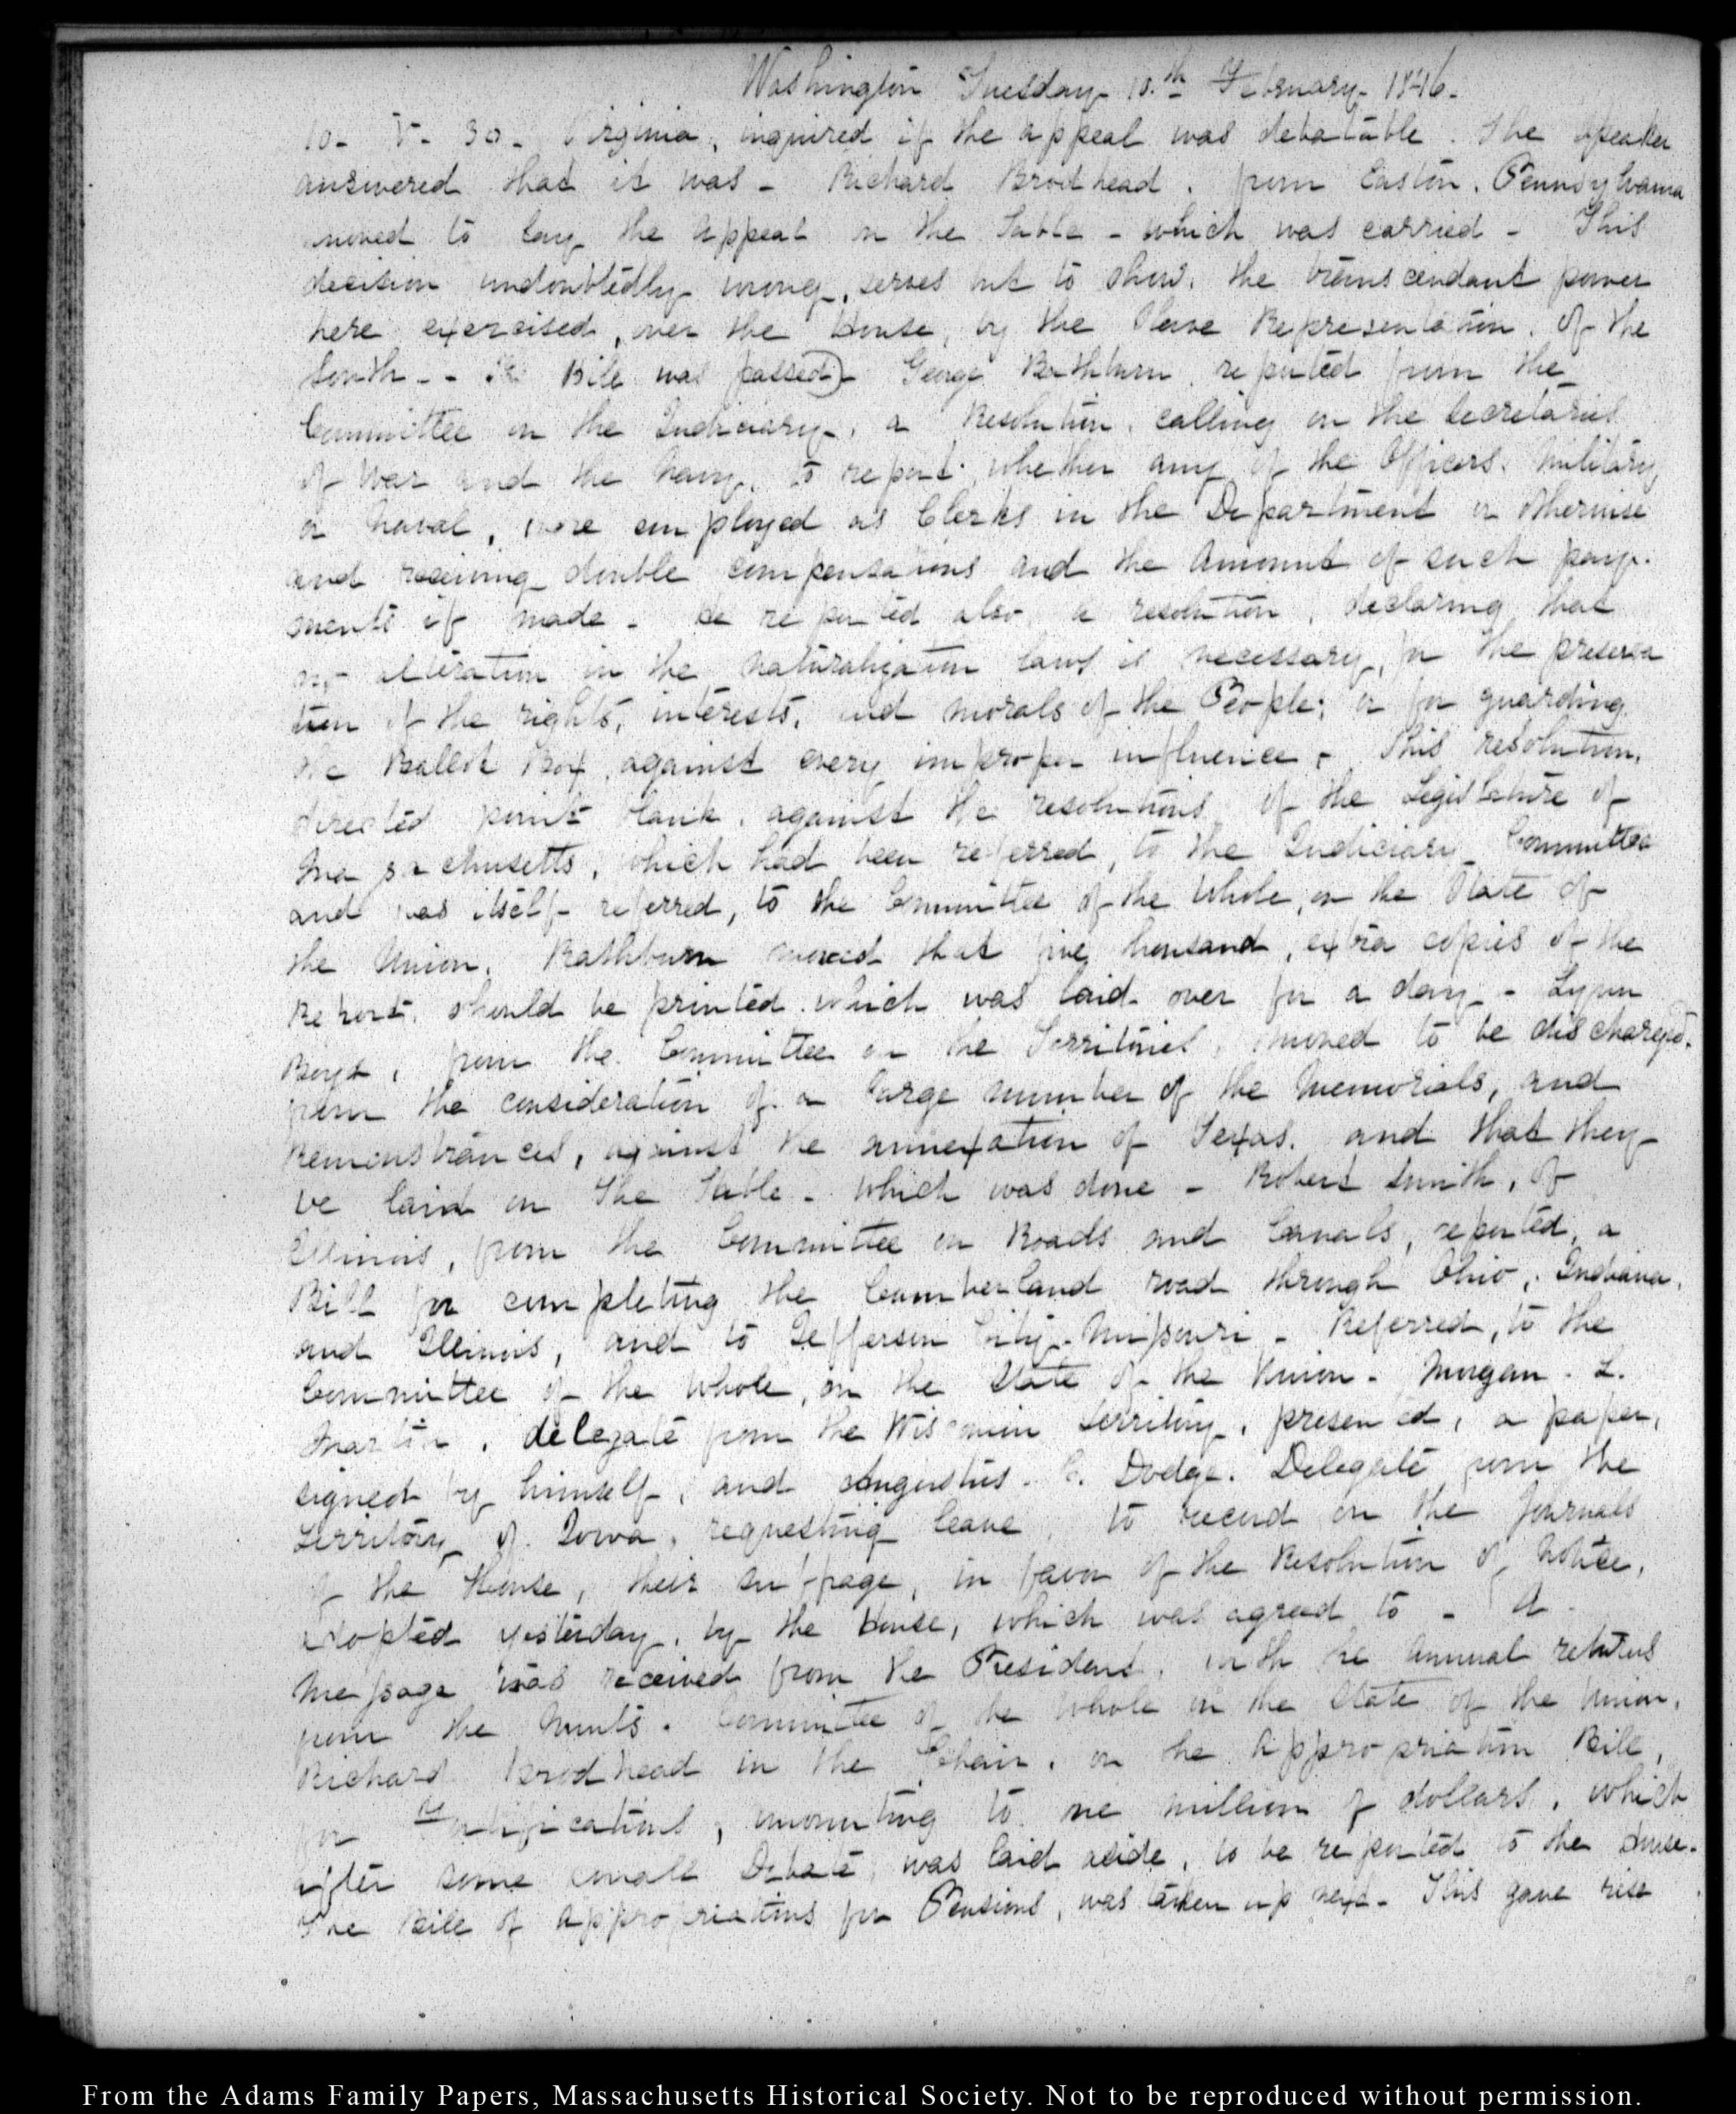 Washington Tuesday 10.th February 1846.
10. V. 30. Virginia, inquired if the appeal was debatable. The Speaker
answered that it was - Richard Brodhead, from Easton, Pennsylvania
moved to lay the appeal on the Table - which was carried - This
decision undoubtedly wrong, serves but to show, the transcendant power
here exercised, over the House, by the Slave Representation, of the
South - - The Bill was passed) George Rathburn reported from the
Committee on the Judiciary, a Resolution, calling on the Secretaries
of War and the Navy, to report whether any of the Officers, Military
or Naval, were employed as Clerks in the Department or otherwise
and receiving double compensations and the amount of such pay-
ments if made - He reported also a resolution, declaring that
no alteration in the naturalization laws is necessary, for the preserva
tion of the rights, interests, and morals of the People; or for guarding
the Ballot Box against every improper influence - This resolution,
directed point blank, against the resolutions of the Legislature of
Massachusetts, which had been referred, to the Judiciary Committee
and was itself referred, to the Committee of the Whole, on the State of
the Union. Rathburn moved that five thousand, extra copies of the
Report, should be printed which was laid over for a day - Lynn
Boyd, from the Committee on the Territories, moved to be discharged.
from the consideration of a large number of the Memorials, and
Remonstrances, against the annexation of Texas, and that they
be laid on the Table - which was done - Robert Smith, of
Illinois, from the Committee on Roads and Canals, reported, a
Bill for completing the Cumberland road through Ohio, Indiana,
and Illinois, and to Jefferson City Missouri - Referred, to the
Committee of the Whole, on the State of the Union - Morgan. L.
Martin, delegate from the Wisconsin Territory, presented, a paper,
signed by himself, and Augustus. C. Dodge. Delegate from the
Territory of Iowa, requesting leave, to record on the Journals
of the House, their suffrage, in favor of the Resolution of Notice,
adopted yesterday, by the House, which was agreed to - A
Message was received from the President, with the annual returns
from the Mints. Committee of the Whole on the State of the Union,
Richard Brodhead in the Chair, on the Appropriation Bill,
for Fortifications, amounting to one million of dollars, which
after some small Debate, was laid aside, to be reported to the House.
The Bill of Appropriations for Pensions, was taken up next - This gave rise
From the Adams Family Papers, Massachusetts Historical Society. Not to be reproduced without permission.